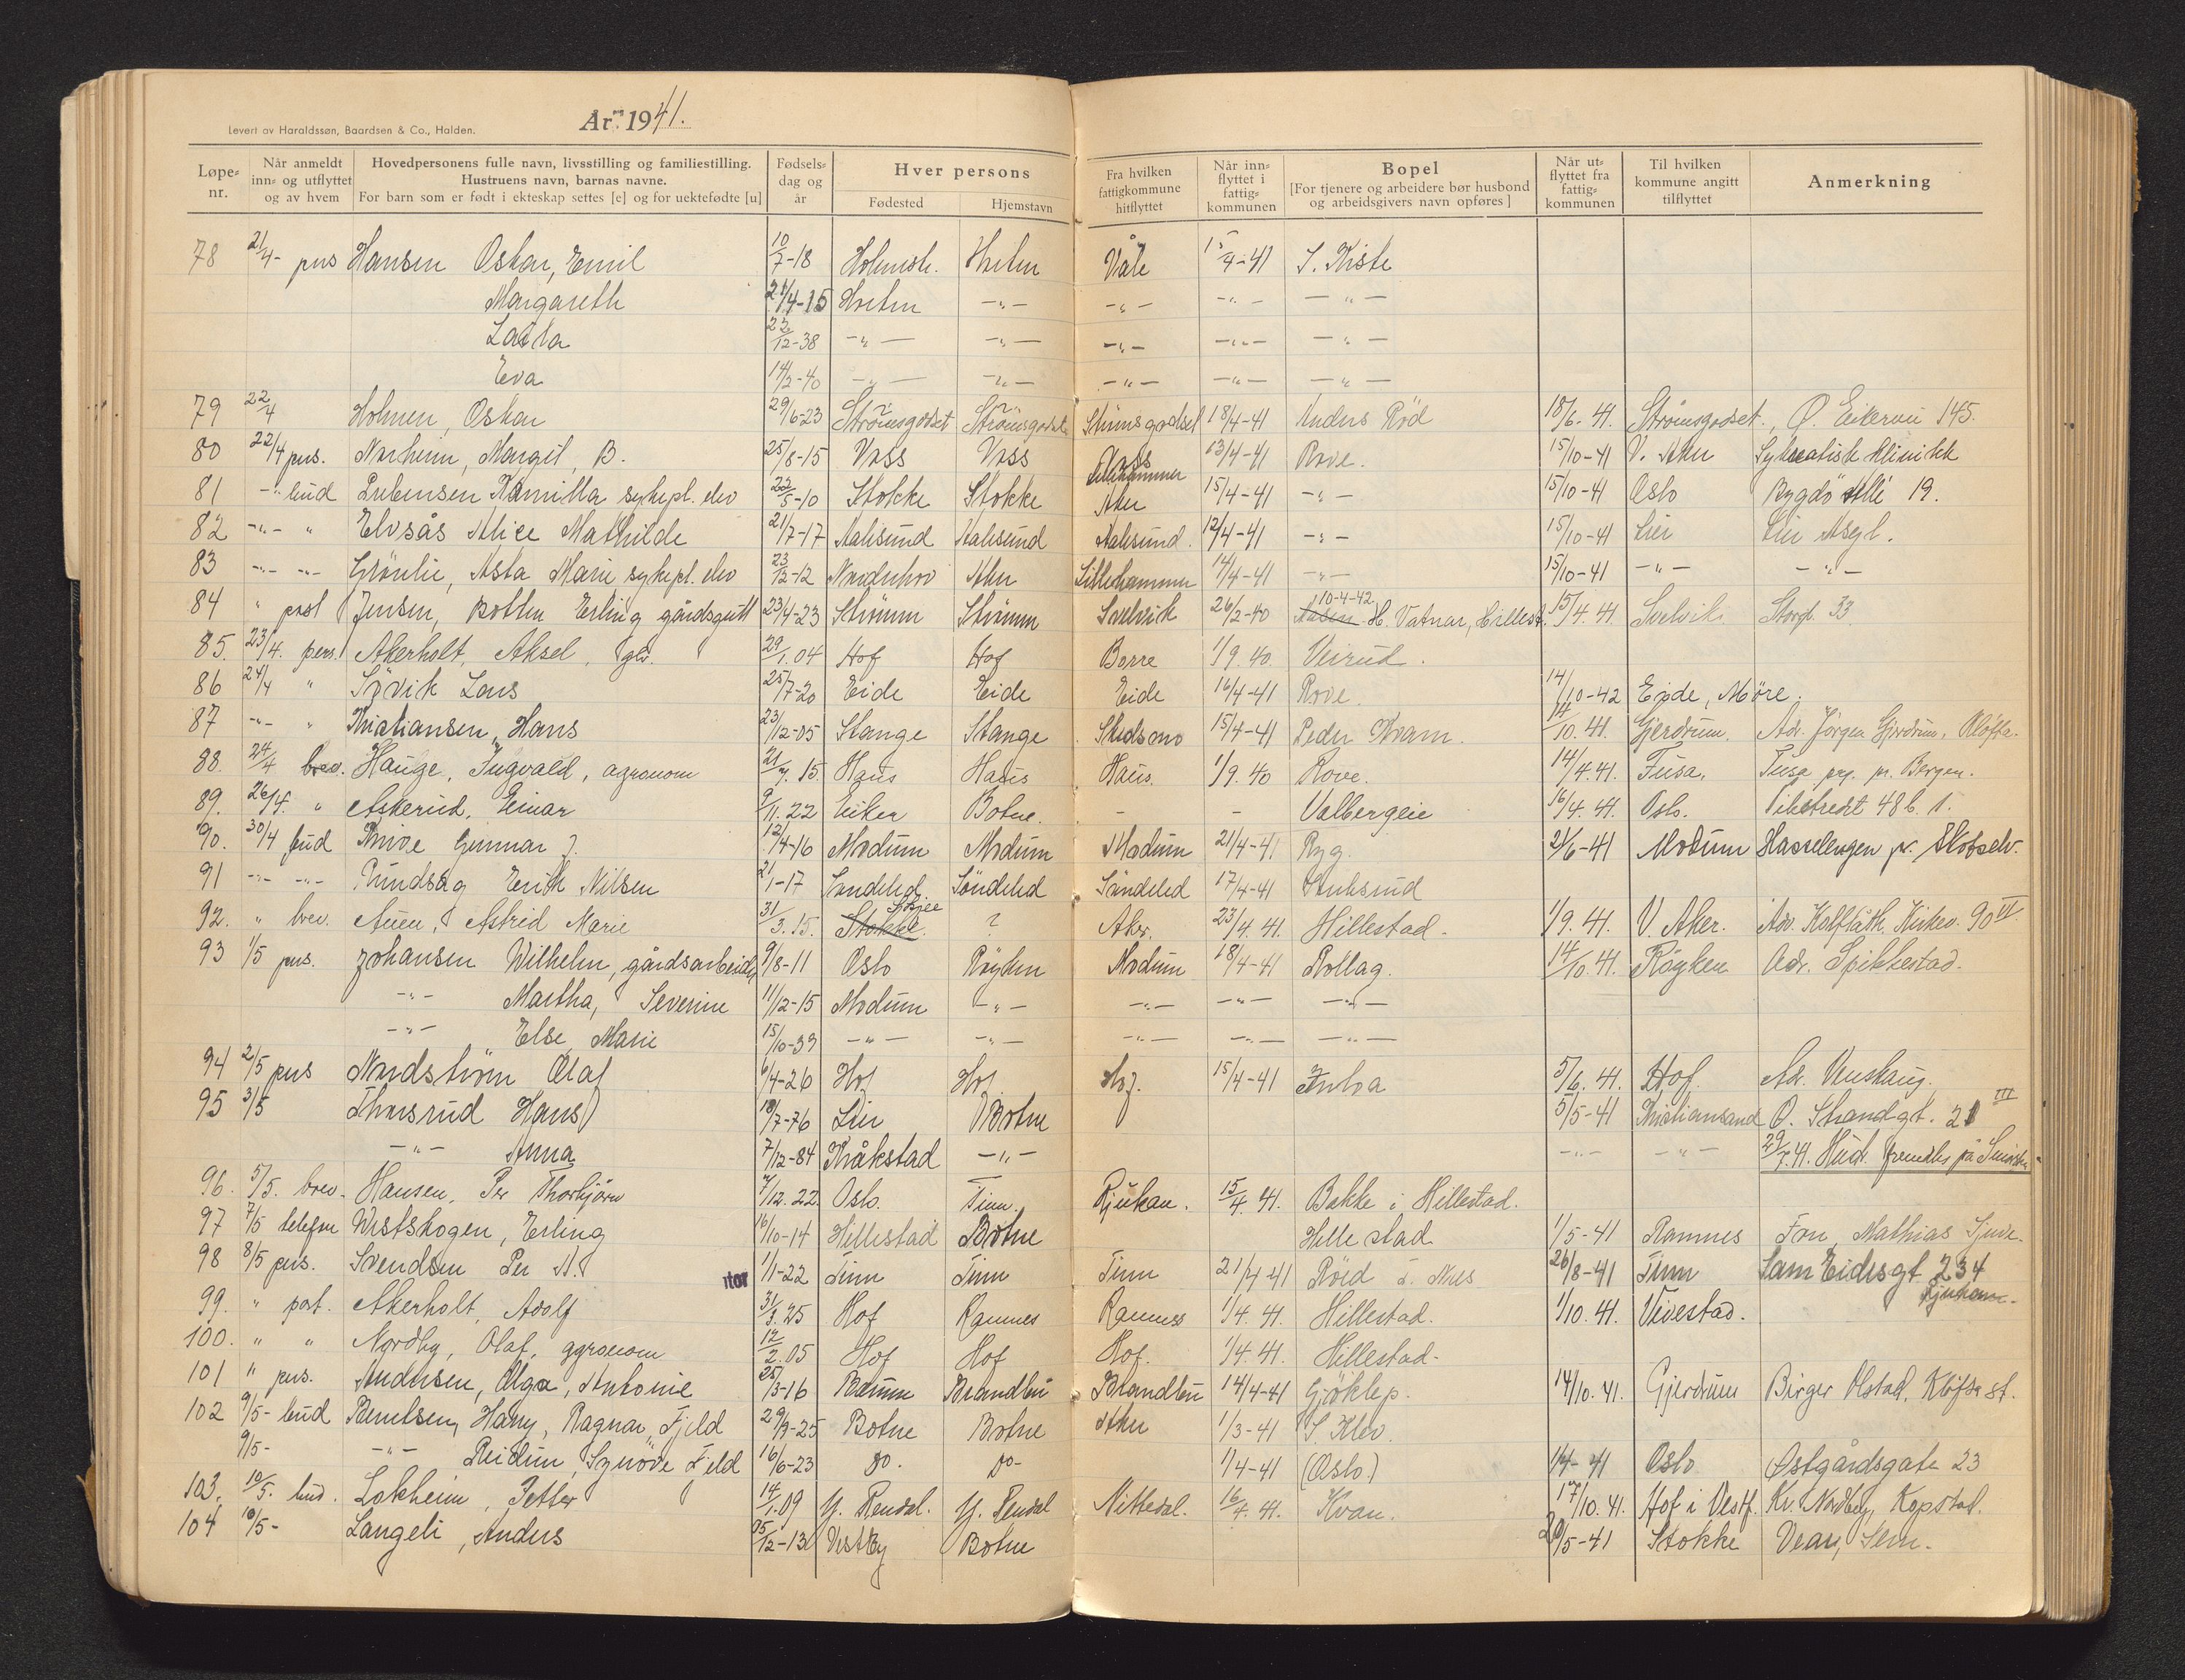 Levert av Haraldssøn, Baardsen & Co., Halden.
År 1941.
Løpe-nr. Når anmeldt inn- og utflyttet og av hvem Hovedpersonens fulle navn, livsstilling og familiestilling. Hustruens navn, barnas navne. For barn som er født i ekteskap settes [e] og for uektefødte [u] Fødsels-dag og år Hver persons Fødested Hjemstavn Fra hvilken fattigkommune hitflyttet Når inn-flyttet i fattig-kommunen Bopel [For tjenere og arbeidere bør husbond og arbeidsgivers navn opføres] Når ut-flyttet fra fattig-kommunen Til hvilken kommune angitt tilflyttet Anmerkning
78 21/4- pers Hansen Oskar, Emil 10/7-18 Holmestr. Horten Våle 15/4-41 S. Kiste
Margareth 21/4-15 Horten -"- -"- -"- -"-
Laila 22/12-38 -"- -"- -"- -"- -"-
Eva 14/2-40 -"- -"- -"- -"- -"-
79 22/4 Holmen, Oskar 29/6-23 Strömsgodset Strömsgodset Strömsgodset 18/4-41 Anders Röd 18/6-41. Strømsgodset., Ø. Eikervei 145.
80 22/4 pers. Norheim, Margit, B. 25/8-15 Voss Voss Voss 13/4-41 Rove. 15/10-41 V. Aker Sykeatisk klinikk
81 -"- bud Prebensen Kamilla sykepl. elev 22/5-10 Stokke Stokke Lillehammer Aker 15/4-41 -"- 15/10-41 Oslo Bygdö Allé 19.
82 -"- " Elvsås Alice Mathilde 21/7-17 Aalesund Aalesund Aalesund. 12/4-41 -"- 15/10-41 Lier Lier Asyl.
83 -"- -"- Grönlie, Asta Marie sykepl. elev 23/12-12 Nordrehov Aker Lillehammer 14/4-41 -"- 15/10-41 -"- -"-
84 " post Jensen, Botten Erling gårdsgutt 23/4-23 Strömm Strömm Svelvik 26/2-40 10-4-42 H. Vatnar, Hillest. 15/4.41. Svelvik. Storgt. 33.
85. 23/4. pers. Akerholt, Aksel, gbr. 29/1.04 Hof Hof Borre 1/9.40. Veirud.
86 24/4 " Sövik Lars 25/7-20 Eide Eide Eide 16/4-41 Rove. 14/10-42 Eide, Møre.
87 -"- " Kristiansen, Hans 23/12-05 Stange Stange Skedsmo 15/4-41 Peder Kvam. 14/10.41. Gjerdrum. Adr. Jörgen Gjerdrum, Kløfta.
88. 24/4 brev. Hauge, Ingvald, agronom 21/7.15. Haus Haus Haus. 1/9.40 Rove. 14/4.41. Fusa. Fusa prg. pr. Bergen.
89. 26/4. " Askerud, Einar 9/11.22 Eiker Botne. - - Valbergeie 16/4.41. Oslo. Vibesgt 48 b. 1.
90. 30/4 bud Knive Gunnar J. 12/4-16 Modum Modum Modum 21/4-41 Ryg. 21/6-41 Modum Hasselengen pr. Skotselv.
91 -"- -"- Rundsag Erik Nilsen 21/1-17 Søndeled. Söndeled Söndeled 17/4-41
92. " brev. Auen, Astrid Marie 31/3.15. Stokke. ? Aker. 23/4.41. Hillestad. 1/9.41. V. Aker. Adr. Kirkev. 90 VI.
93 1/5 pers. Johansen Wilhelm, gårdsarbeider 9/8-11 Oslo Röyken Modum 18/4-41 Rollag. 14/10.41. Röyken Adr. Spikkestad.
-"- Martha, Severine 11/12-15 Modum -"- -"- -"- -"-
-"- Else, Marie 15/10-39 -"- -"- -"- -"- -"-
94 2/5 pers Nordström Olaf 6/4-26 Hof Hof Hof. 15/4-41 5/6.41. Hof. Adr.
95 3/5 Thorsrud Hans 18/7-76 Lier Botne 5/5-41 Kristiansand Ø. Strandgt. 21 III
-"- Anna 7/12-84 Kråkstad -"- -"- -"- 29/7.41.
96. 5/5. brev. Hansen, Per Thorbjörn 7/12.22. Oslo. Tinn. Rjukan. 15/4.41. Bakke i Hillestad.
97 7/5 telefon Vestskogen, Erling 16/10-14 Hillestad Botne Hillestad 1/5-41 Ramnes Fon, Mathias
98 8/5 pers. Svendsen Per A. 1/1-22 Tinn Tinn Tinn 21/4 41 Röed i. Nes 26/8-41 Tinn Sam Eidesgt 234 Rjukan.
99. " post. Akerholt, Adolf 31/3.25 Hof Ramnes Ramnes 1/4.41. Hillestad. 1/10.41. Vivestad.
100. " " Nordby, Olaf, agronom 12/2.05 Hof Hof Hof. 1/4.41. Hillestad.
101 " pers. Andersen, Olga, Antonie 25/3-16 Bærum Brandbu Brandbu 14/4-41 Gjöklep. 14/10.41. Gjerdrum Birger Olstad, Kløfta st.
102 9/5- bud Berntsen, Harry, Ragnar, Fjeld 29/9-25 Botne Botne Aker 1/3-41 S. Klev.
9/5- -"- Reidun, Synöve Fjeld 16/6-23 Do. Do- 1/4-41 (Oslo.) 1/4-41 Oslo Østgårdsgate 23
103. 10/5. bud. Lokheim, Petter 14/1.09 Y. Rendal. Y. Rendal Nittedal. 16/4.41. Kvan. 17/10.41. Hof i Vestf. Kr. Nordby, Kopstad.
104 10/5- Langeli, Anders 25/12-13 Vestby Botne 20/5-41 Stokke Vear, Sem.